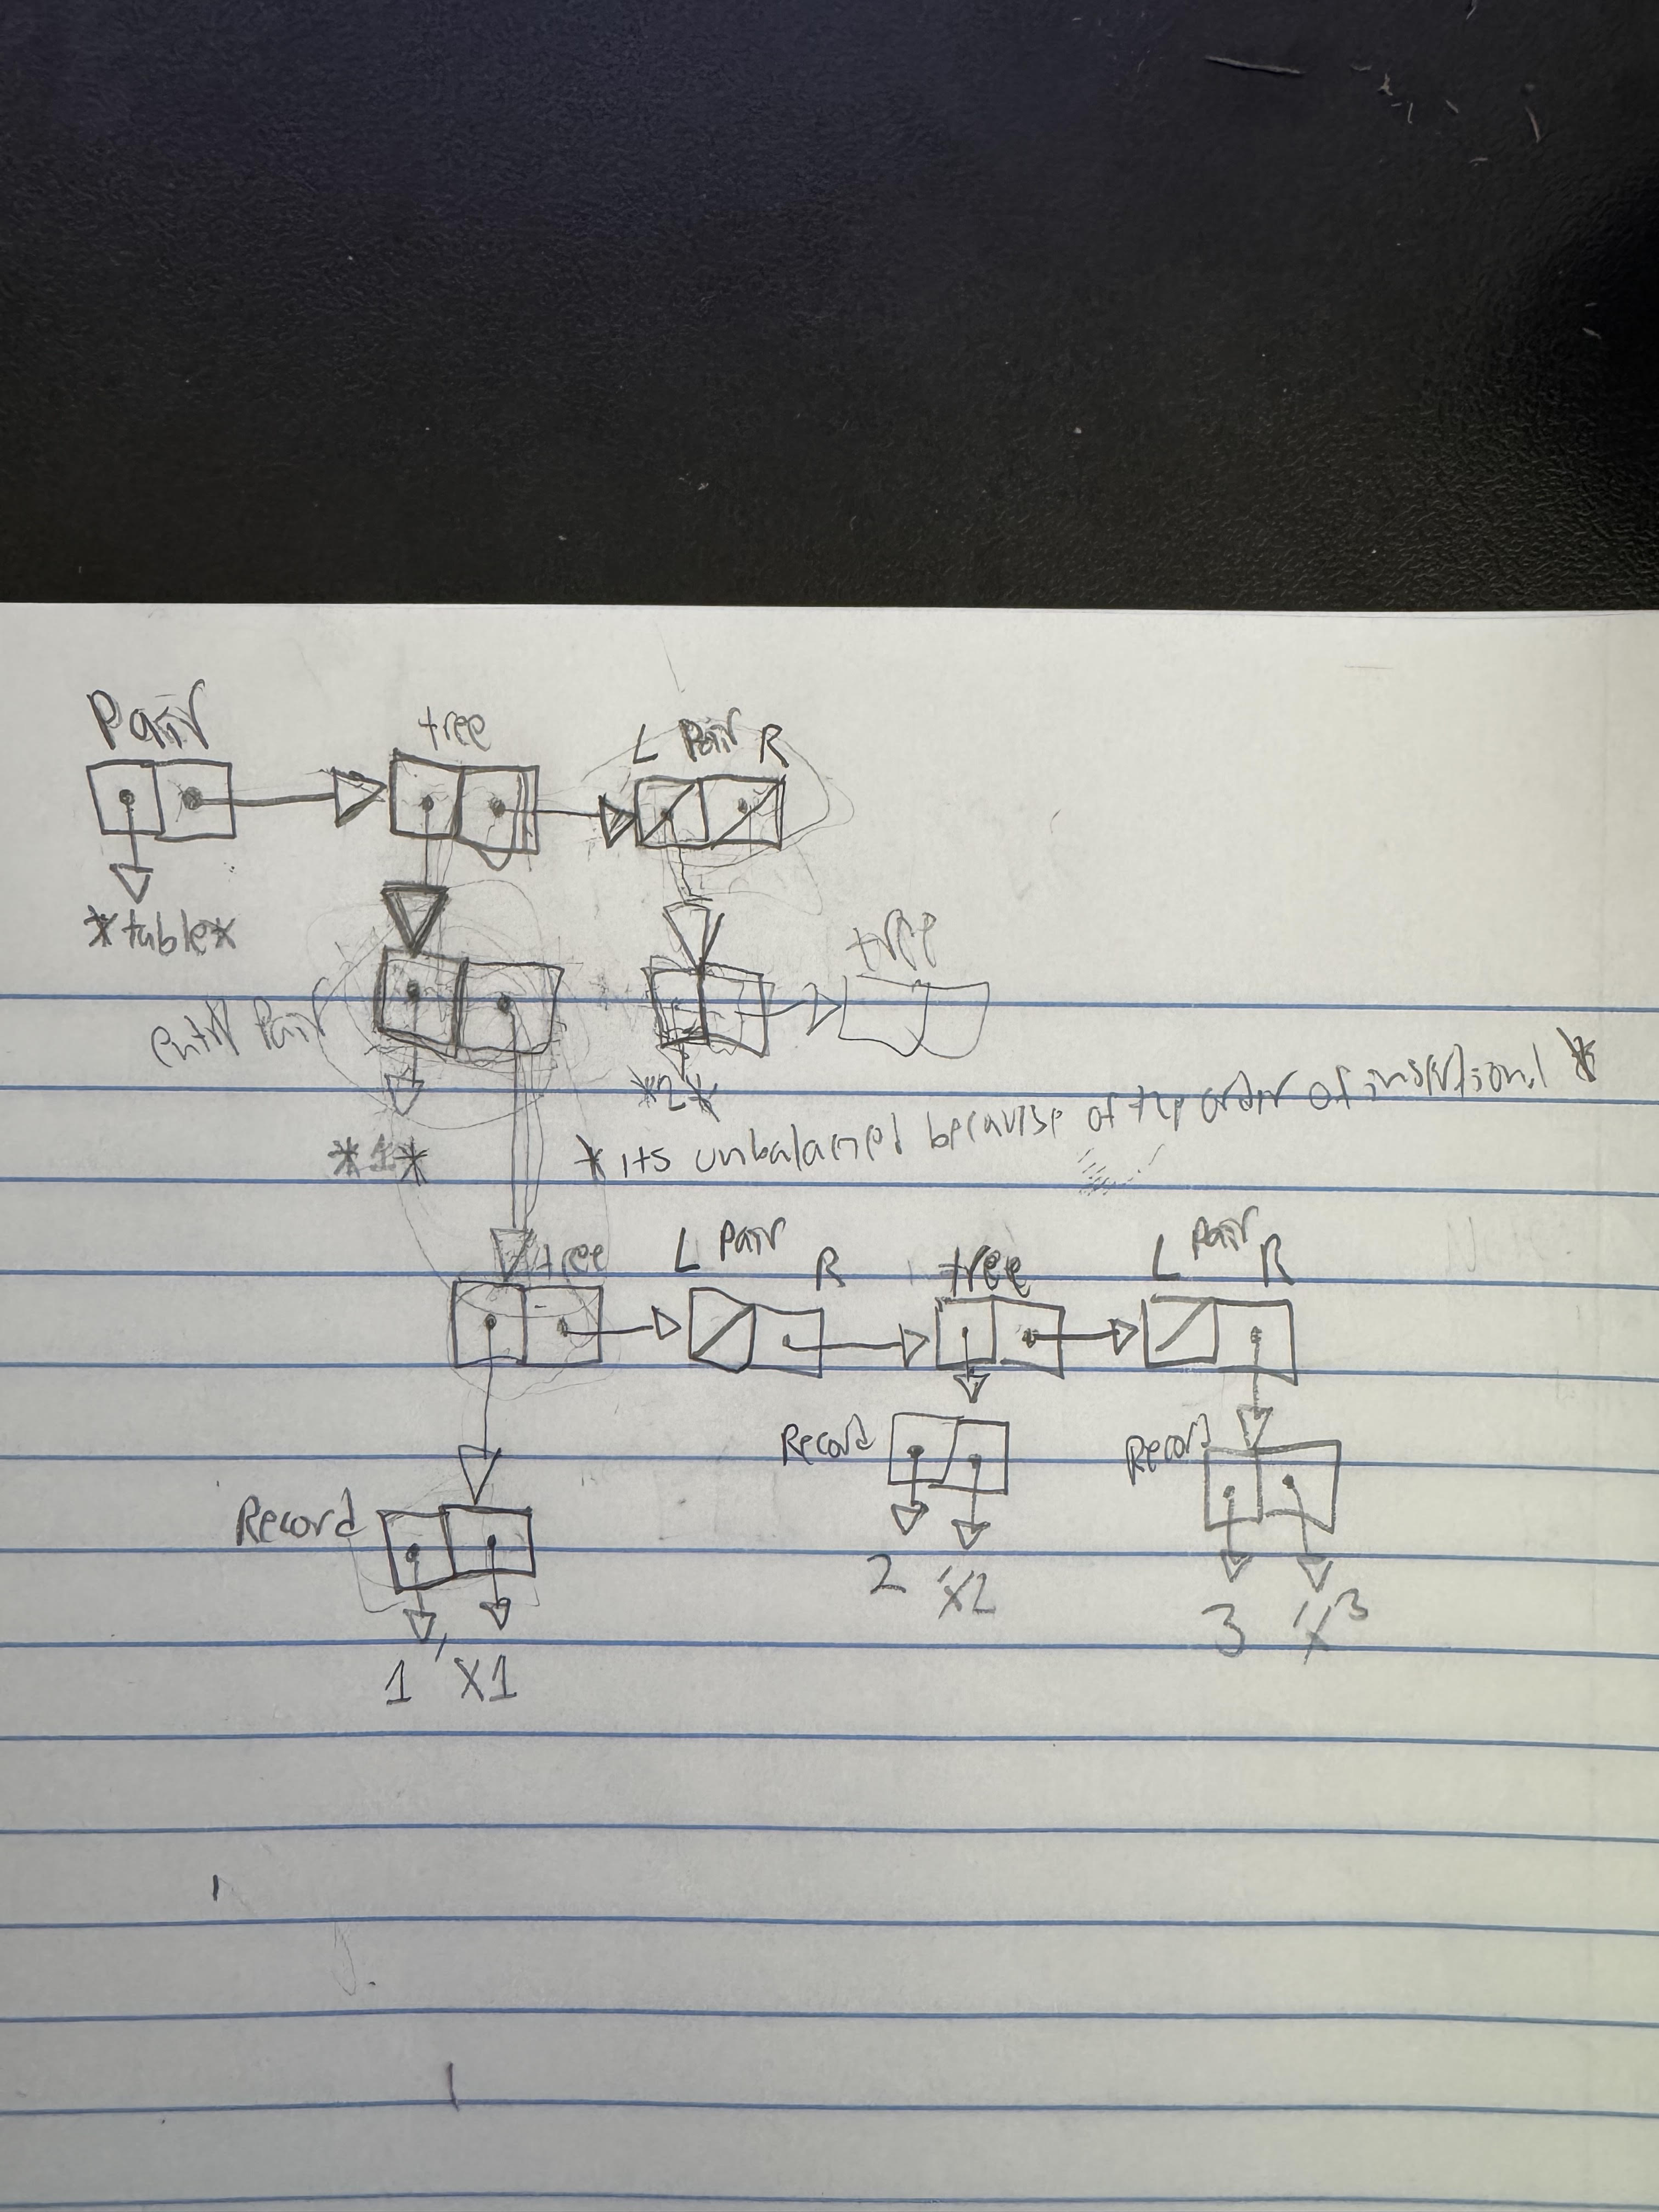 Pair
tree
L Pair R
*table*
tree
entry Pair
*2*
*1*
*its unbalanced because of the order of insertion! *
tree
L Pair R
tree
L Pair R
Record
Record
Record
2 'x2
3 'x3
1 'x1